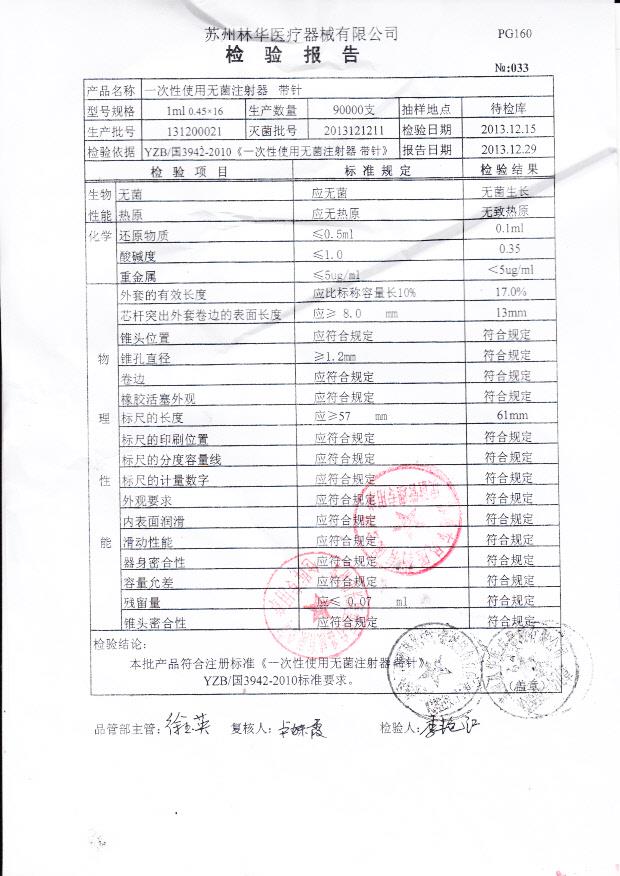 苏州林华医疗器械有限公司 PG160
检 验 报 告
№:033
产品名称 一次性使用无菌注射器 带针
型号规格 1ml 0.45×16 生产数量 90000支 抽样地点 待检库
生产批号 131200021 灭菌批号 2013121211 检验日期 2013.12.15
检验依据 YZB/国3942-2010《一次性使用无菌注射器 带针》 报告日期 2013.12.29
检 验 项 目 标 准 规 定 检 验 结 果
生物 无菌 应无菌 无菌生长
性能 热原 应无热原 无致热原
化学 还原物质 ≤0.5ml 0.1ml
酸碱度 ≤1.0 0.35
重金属 ≤5ug/ml <5ug/ml
外套的有效长度 应比标称容量长10% 17.0%
芯杆突出外套卷边的表面长度 应≥ 8.0 mm 13mm
锥头位置 应符合规定 符合规定
物 锥孔直径 ≥1.2mm 符合规定
卷边 应符合规定 符合规定
橡胶活塞外观 应符合规定 符合规定
理 标尺的长度 应≥57 mm 61mm
标尺的印刷位置 应符合规定 符合规定
标尺的分度容量线 应符合规定 符合规定
性 标尺的计量数字 应符合规定 符合规定
外观要求 应符合规定 符合规定
内表面润滑 应符合规定 符合规定
能 滑动性能 应符合规定 符合规定
器身密合性 应符合规定 符合规定
容量允差 应符合规定 符合规定
残留量 应≤ 0.07 ml 符合规定
锥头密合性 应符合规定 符合规定
检验结论:
本批产品符合注册标准《一次性使用无菌注射器 带针》
YZB/国3942-2010标准要求。 (盖章)
品管部主管: 复核人: 检验人: